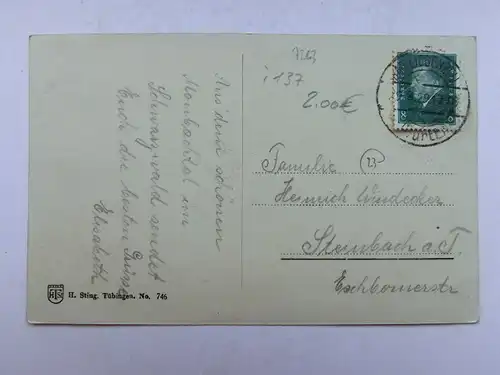 Aus dem schönen
Monbachtal im
Schwarzwald sendet
Euch die besten Grüsse
Elisabeth
7563
i 137
2.00€
Familie
23
Heinrich Windecker
Steinbach a.T.
Eschbornerstr
H. Sting, Tübingen. No. 746